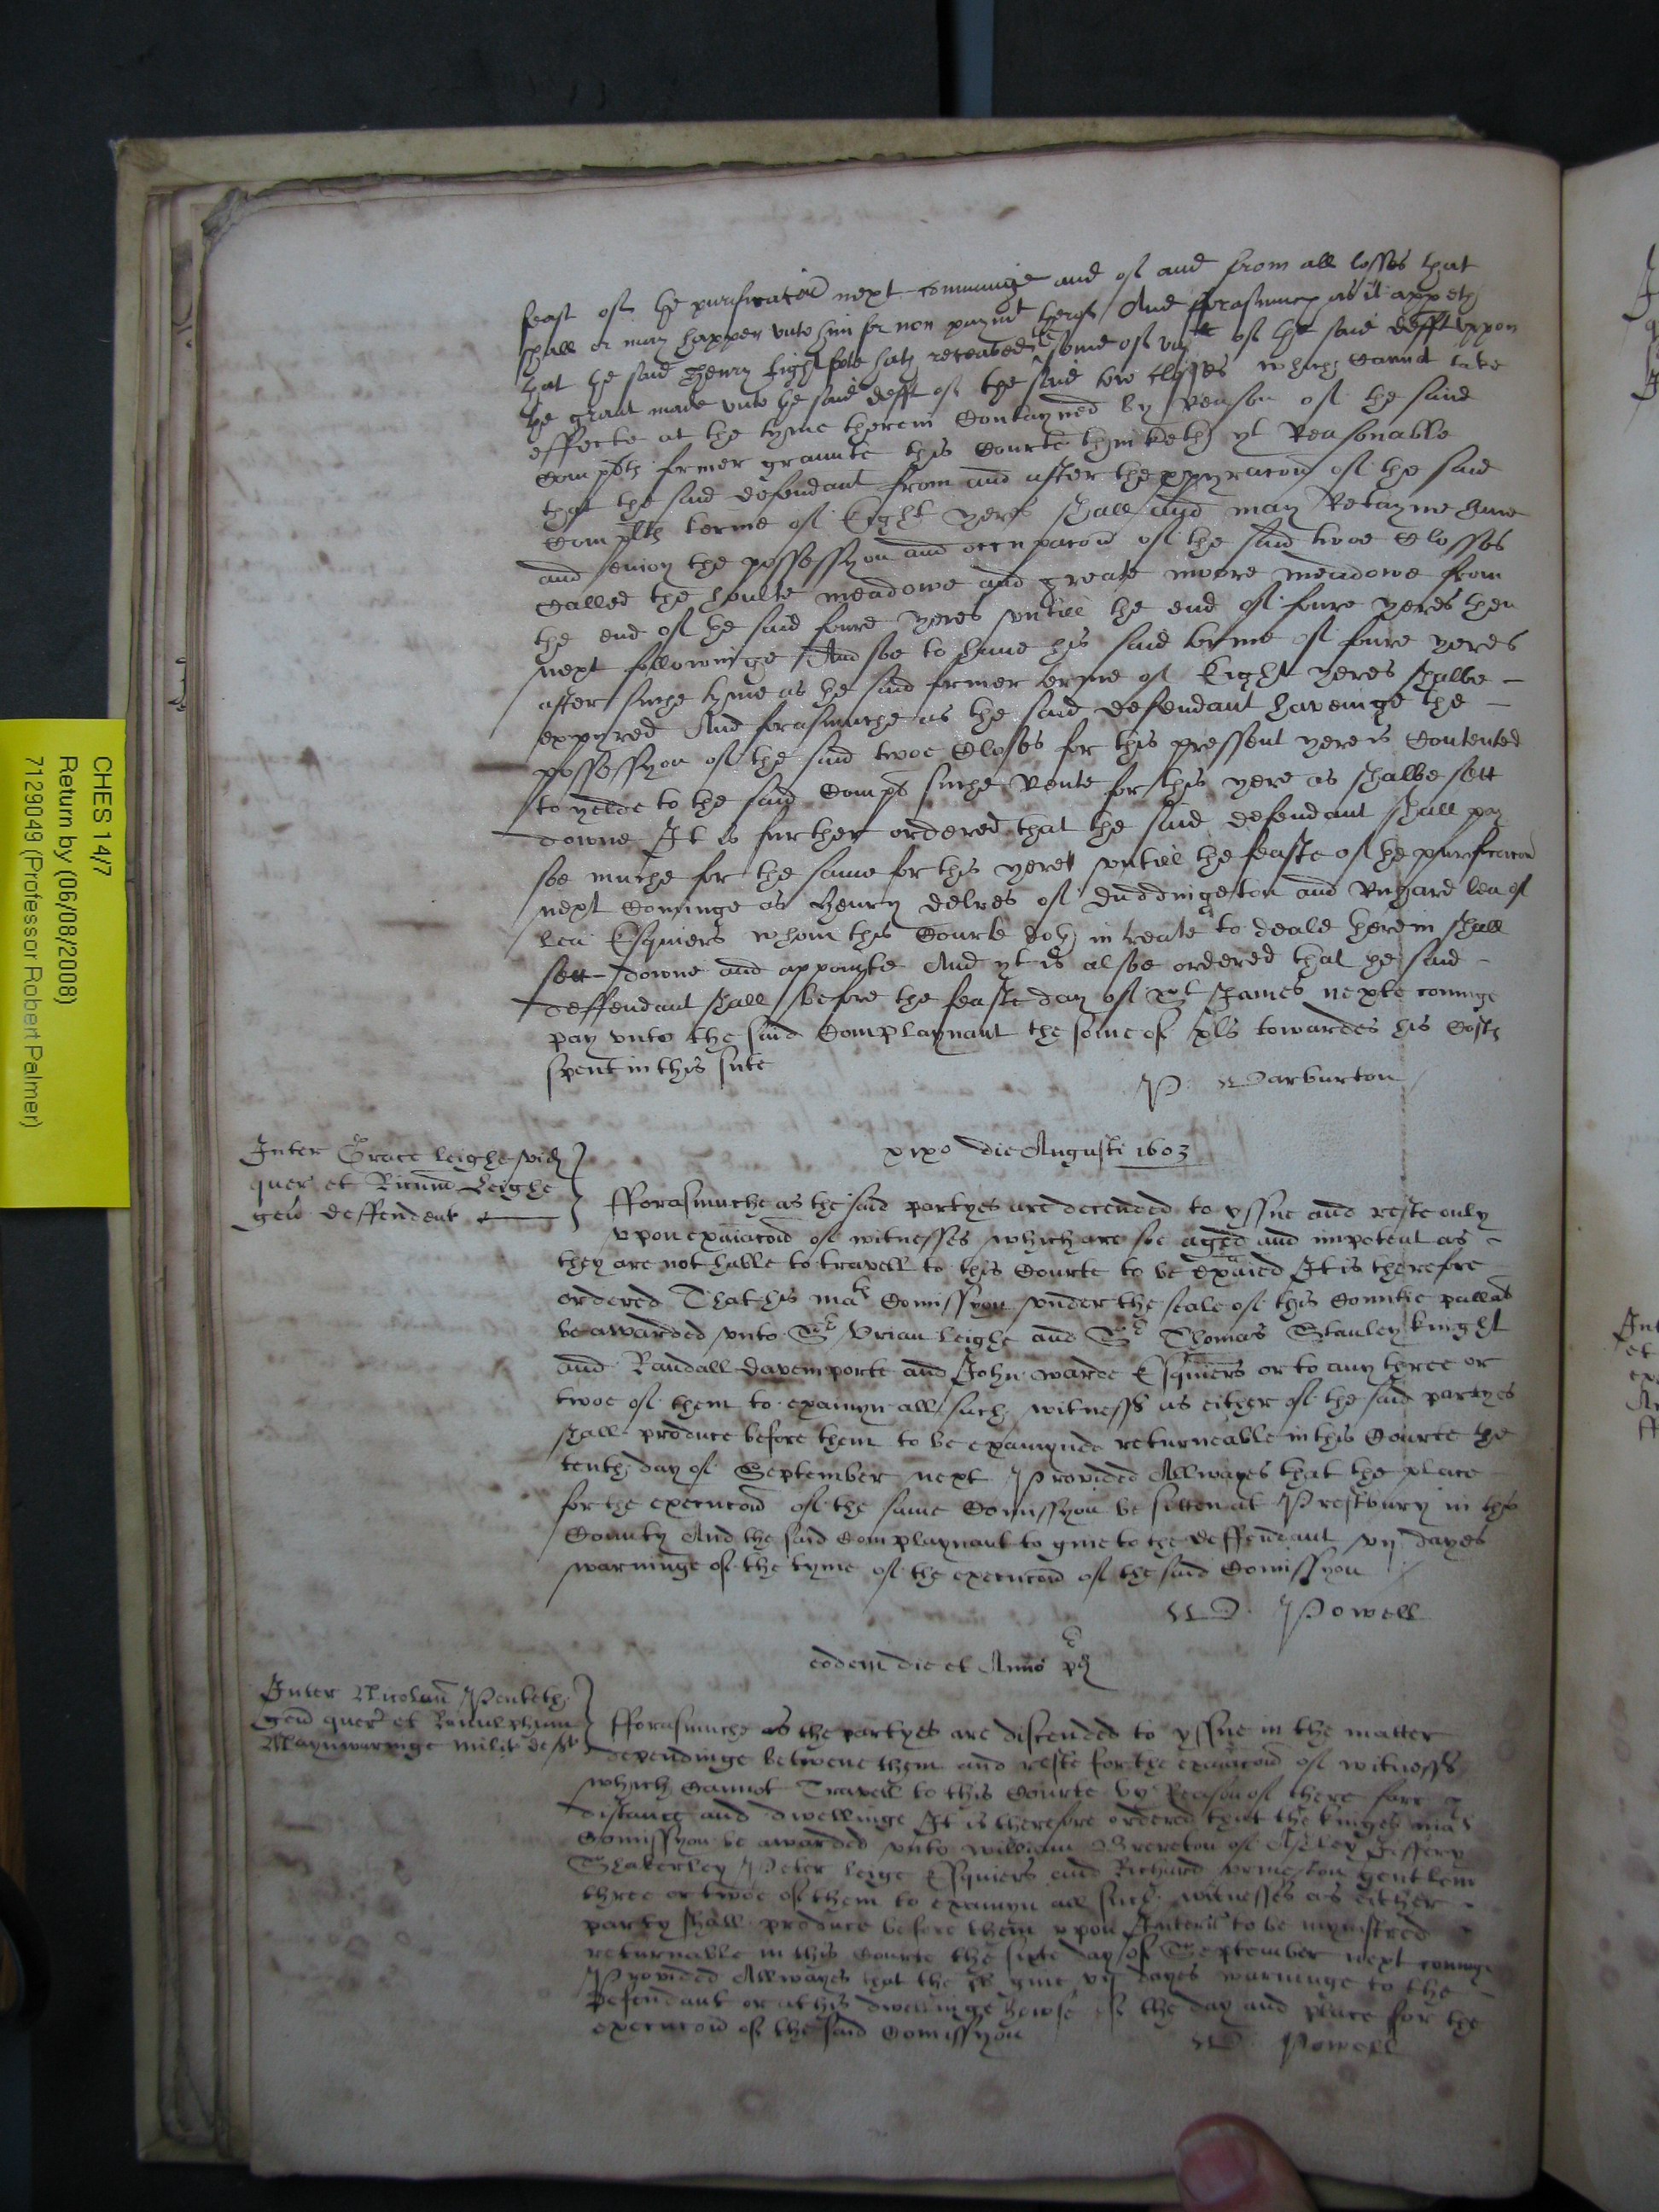 feast of the purificacōn next comminge and of and from all losses that
shall or may happen vnto him for non paymt therof And fforasmuch as it appeth
that the said Henry lightfote hath receaved the some of of the said defft vppon
the graunt made vnto the said defft of the said two closses which Cannot take
effecte at the tyme therein Contayned by Reason of the said
Complts former graunte this Courte thinketh yt Reasonable
that the said defendant from and after the expyracōn of the said
Complts terme of Eight yeres shall and may Retayne haue
and enioy the possessyon and occupacōn of the said twoe Closses
Called the houlte meadowe and greate moore meadowe from
the end of the said foure yeres vntill the end of foure yeres then
next followinge And soe to haue his said terme of foure yeres
after suche tyme as the said former terme of Eight yeres shalbe -
expyred And forasmuche as the said defendant haveinge the -
possessyon of the said twoe Closes for this pressent yere is Contented
to yelde to the said Compt suche Rente for this yere as shalbe sett
downe It is further ordered that the said defendant shall pay
soe muche for the same for this yere vntill the feaste of the purificacōn
next Cominge as Henry delves of duddingeton and Richard lea of
lea Esquiers whom this Courte doth intreate to deale herein shall
sett downe and appointe And yt is alsoe ordered that the said -
deffendant shall before the feaste day of St James nexte cominge
pay vnto the said Complaynant the some of xls towardes his Costs
spent in this sute
P Warburton
Inter Grace leighe vid
quer et Ricum Leighe
gen deffendent
xixo die Augusti 1603
fforasmuche as the said partyes are decended to yssue and reste only
vpon exaīacōn of witnesses which are soe aged and impotent as -
they are not hable to travell to this Courte to be exaīed It is therefre
ordered That his mats Comissyon vnder the seale of this Countie pallat
be awarded vnto Sr Vrian leighe and Sr Thomas Stanley knight
and Randall davemporte and John warde Esquiers or to any three or
twoe of them to examyn all such witnesses as either of the said partyes
shall produce before them to be examynde returneable in this Courte the
tenth day of September next Provided Allwayes that the place
for the execucōn of the same Comissyon be sitten at Prestbury in this
County And the said Complaynant to give to the deffendant vij dayes
warninge of the tyme of the execucōn of the said Comissyon
W Powell
eodem die et Anno pd
Inter Nicolau Penketh
gen quer et Ranulphum
Maynwaringe milit defft
fforasmuche as the partyes are discended to yssue in the matter
dependinge betwene them and reste for the exaīacōn of witnesses
which Cannot Travell to this Courte by Reason of there farre
distance and dwellinge It is therefore ordered that the kinges mats
Comissyon be awarded vnto william Brereton of Asheley Jeffery
Shakerley Peter leige Esquiers and Richard vrmeston gentlem
three or twoe of them to examyn all such witnesses as either -
party shall produce before them vpon Interr to be mynistred
returnable in this Courte the sixte day of September next cominge
Provided Allwayes that the pl give vij dayes warninge to the
defendant or at his dwellinge howse of the day and place for the
execucōn of the said Comissyon
W Powell
CHES 14/7
Return by (06/08/2008)
7129049 (Professor Robert Palmer)